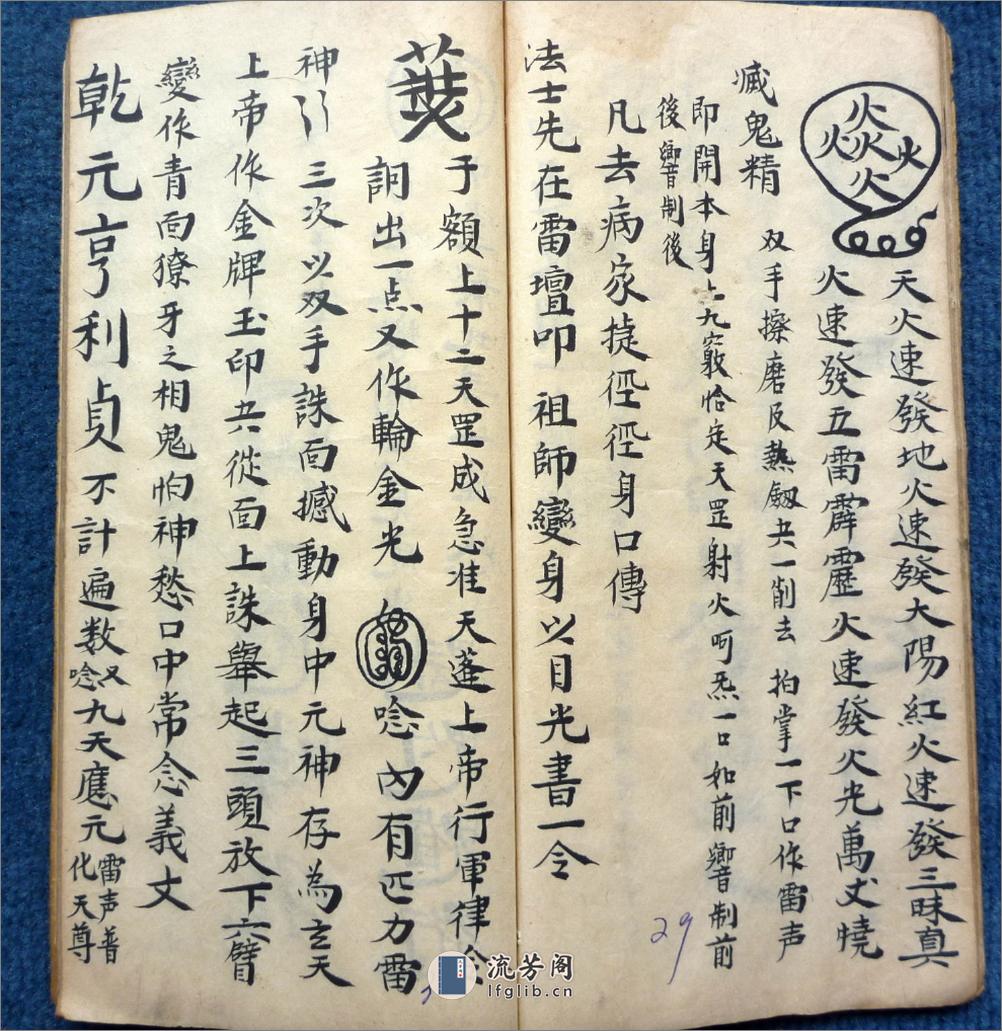 火火火火火火
天火速發地火速發大陽紅火速發三昧真
火速發五雷霹靂火速發火光萬丈燒
滅鬼精 双手擦磨及熱劔共一削去 拍掌一下口作雷声
即開本身上九竅恰定天罡射火呵炁一口如前響制前
後響制後
凡去病家捷徑徑身口傳
法士先在雷壇叩 祖師變身以目光書一令
于額上十二天罡成急准天蓬上帝行軍律令
詷出一点又作輪金光 唸內有匹力雷
神 三次以双手誅面撼動身中元神存為玄天
上帝作金牌玉印共從面上誅舉起三頭放下六臂
變作青面獠牙之相鬼怕神愁口中常念義文
乾元亨利貞不計遍数又唸九天應元雷声普化天尊
29
流芳阁
lfglib.cn